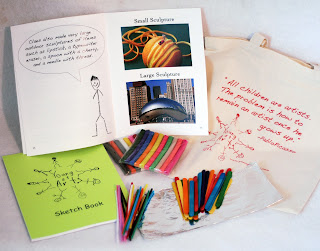 Claes also made very large
outdoor sculptures of items
such as lipstick, a typewriter
eraser, a spoon with a cherry,
and a needle with thread.
Small Sculpture
Large Sculpture
"All children are artists.
The problem is how to
remain an artist once he
grows up."
Sketch Book